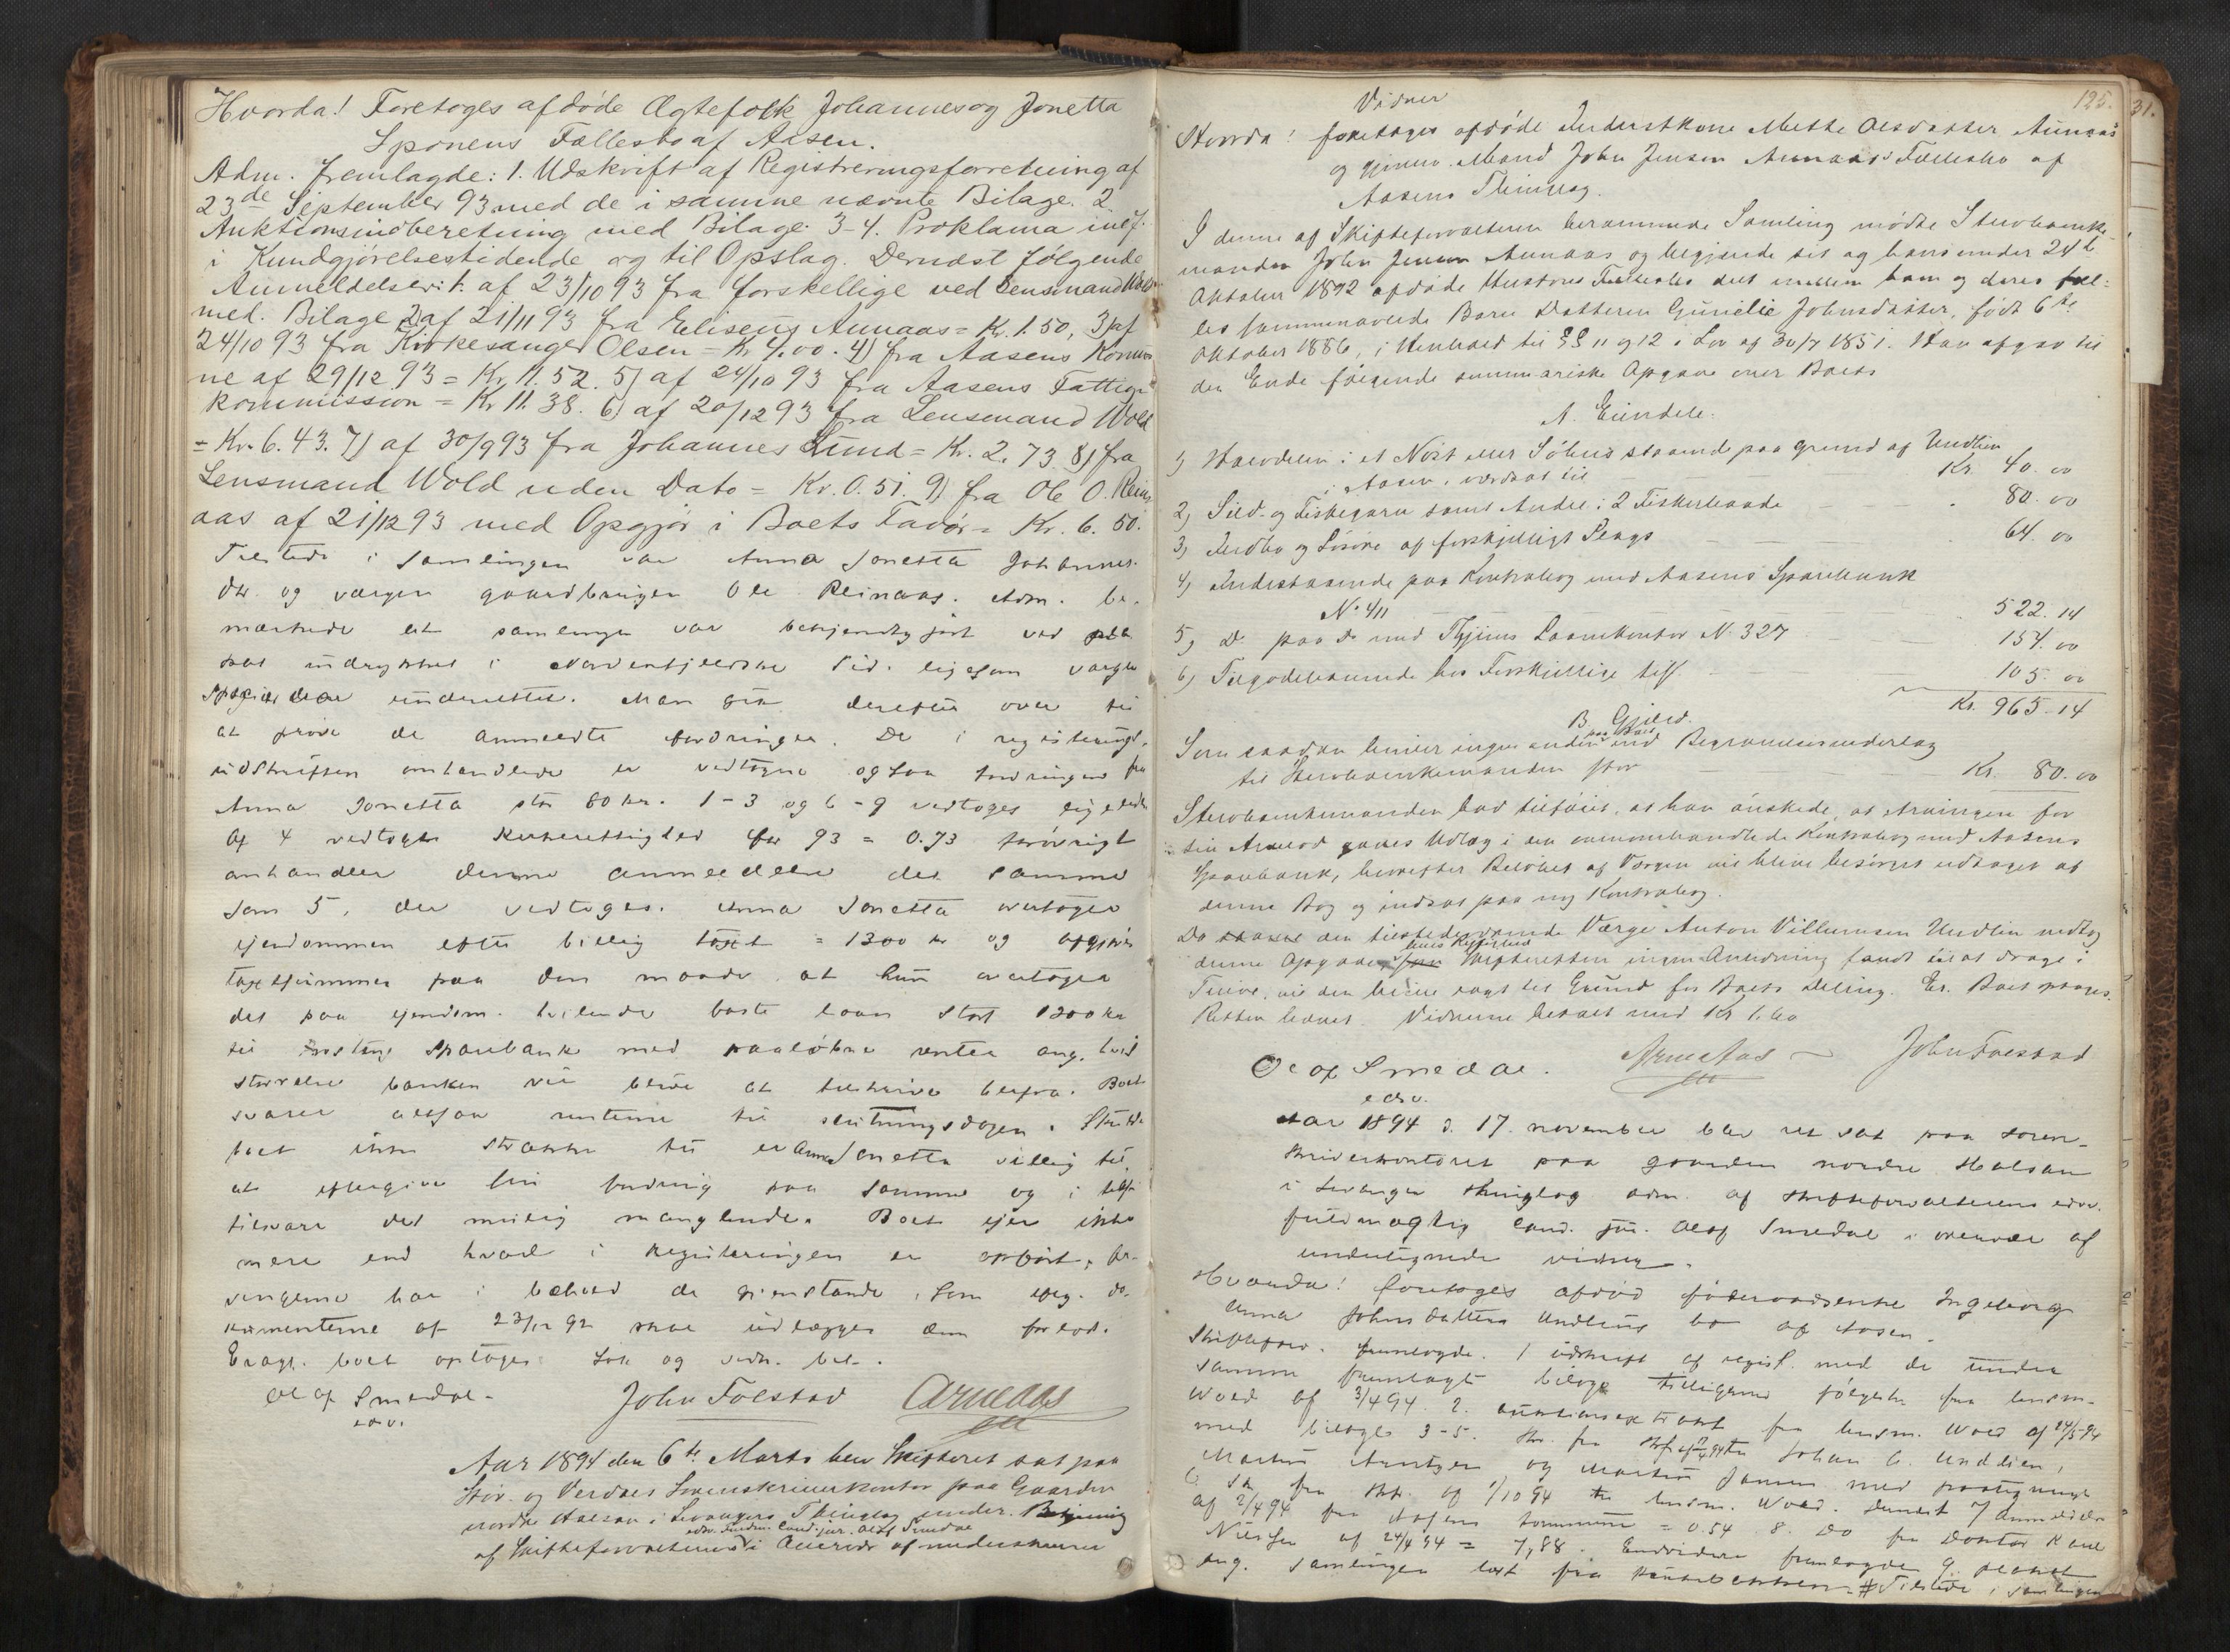 Hvorda! Foretoges afdøde Ægtefolk Johannes og Jonetta
Sponens Fællesbo af Aasen.
Adm. fremlagde: 1. Udskrift af Registreringsforretning af
23de September 93 med de i samme nævnte Bilage. 2
Auktionsindberetning med Bilage. 3-4. Proklama indf.
i Kundgjørelsestidende og til Opslag. Dernæst følgende
Anmeldelser: 1. af 23/10 93 fra forskellige ved Lensmand Wold
med Bilage 2 af 21/11 93 fra Eliseus Aunaas = Kr. 1.50, 3) af
24/10 93 fra Kirkesanger Olsen = Kr 4.00. 4) fra Aasens Kommu
ne af 29/12 93 = Kr. 11.52. 5) af 24/10 93 fra Aasens Fattig-
kommission = Kr 11.38. 6) af 20/12 93 fra Lensmand Wold
= Kr. 6.43. 7) af 30/9 93 fra Johannes Lund = Kr. 2.73 8) fra
Lensmand Wold uden Dato = Kr. 0.51. 9) fra Ole O. Rein
aas af 21/12 93 med Opgjør i Boets Favør = Kr. 6.50.
Tilstede i samlingen var Anna Jonetta Johannes-
dtr. og værgen gaardbruger Ole Reinaas. Adm. be-
mærkede at samlingen var bekjendtgjort ved
indrykket i Nordenfjeldske Tid. ligesom værgen
underrettet. Man gik derefter over til
at prøve de anmeldte fordringer. De i registrerings-
udskriften omhandlede er vedtagne ogsaa fordringen fra
Anna Jonetta stor 80 kr. 1-3 og 6-9 vedtoges ligeledes
Af 4 vedtoges Kirkerettighed for 93 = 0.73 forøvrigt
omhandler denne anmeldelse det samme
som 5, der vedtoges. Anna Jonetta overtager
ejendommen efter billig taxt = 1300 kr og opgjør
taxtsummen paa den maade at hun overtager
det paa ejendom. hvilende 1ste laan stort 1200 kr
til Frosten Sparebank med paaløbne renter ang. hvis
størrelse banken vil blive at tilskrive herfra. Boet
svarer altsaa renterne til slutningsdagen. Skulde
boet ikke strække til er Anna Jonetta villig til
at eftergive sin fordring paa samme og i tilf.
tilsvare det mulig manglende. Boet ejer ikke
mere end hvad i registreringen er opført, ar-
vingerne har i behold de gjenstande, som ifølg. do-
kumenterne af 23/12 92 skal udlægges dem forlod.
Eragt. boet optages Sok og vidn. bet.
Olaf Smedal
edsv.
John Folstad Arneaas
Aar 1894 den 6te Marts blev Skifteret sat paa
Stør- og Verdals Sorenskriverkontor paa Gaarden
nordre Halsan i Levangers Thinglag under Betjening
edsv. Fuldm. Cand. jur. Olaf Smedal
af Skifteforvalteren i Overvær af underskrevne
125.
31.
Vidner
Hvorda! foretoges afdøde Inderstkone Mette Olsdatter Aunaas
og gjenlev. Mand John Jensen Aunaas's Fællesbo af
Aasens Thinglag.
I denne af Skifteforvalteren berammede Samling mødte Stervboenke-
manden John Jensen Aunaas og begjærede sit og hans under 24de
Oktober 1892 afdøde Hustrues Fællesbo delt mellem ham og deres fæl-
les sammenavlede Barn Datteren Gunelie Johnsdatter, født 6te
Oktober 1886, i Henhold til §§ 11 og 12 i Lov af 30/7 1851. Han afgav til
den Ende følgende summariske Opgave over Boets
A. Eiendele.
1) Halvdelen i et Nøst eller Søhus staaende paa Grund af Undlien
i Aasen, værdsat til Kr. 40.00
2) Sild- og Fiskegarn samt Andel i 2 Fiskerbaade 80.00
3) Indbo og Løsøre af forskjelligt Slags 64.00
4) Indestaaende paa Kontrabog med Aasens Sparebank
No 411 522.14
5) Do. paa Do med Laanekontor No 327 154.00
6) Tilgodehavende hos Forskjellige tils. 105.00
Kr. 965.14
B. Gjæld.
Som saadan hviler ingen anden paa Boet end Begravelsesudlæg
til Stervboenkemanden stor Kr. 80.00
Stervboenkemanden bad tilføiet, at han ønskede, at Arvingen for
sin Arvelod gaves Udlæg i den ovenomhandlede Kontrabog med Aasens
Sparebank, hvorefter Beløbet af Værgen vil blive besørget udtaget af
denne Bog og indsat paa ny Kontrabog.
Da den tilstedeværende Værge Anton Villumsen Undlien vedtog
denne Opgave, hvis Rigtighed Skifteretten ingen Anledning fandt til at drage i
Tvivl, vil den blive lagt til Grund for Boets Deling. Er. Boet paag.
Retten hævet. Vidnerne betalt med Kr 1.60
Olaf Smedal.
edsv.
Arneaas John Folstad
Aar 1894 d. 17. november blev ret sat paa soren-
skriverkontoret paa gaarden nordre Halsan
i Levanger thinglag adm. af skifteforvalterens edsv.
fuldmægtig cand. jur. Olaf Smedal i overvær af
undertegnede vidner.
Hvorda! foretoges afdød føderaadsenke Ingeborg
Anna Johnsdatter Undliens bo af Aasen.
Skifteforv. fremlagde. 1 udskrift af regist. med de under
samme fremlagte bilage tilligemed følgeskr. fra lensm.
Wold af 3/4 94. 2. auktionsextrakt fra lensm. Wold af 24/5 94
med bilage 3-5. Skr. fra til Johan C. Undlien,
Martin Arntzen og Martin Jensen med paategning
6 Skr. fra Skf. af 1/10 94 til lensm. Wold. Dernæst 7 Anmeldelse
af 2/4 94 fra Aasens kommune = 0.54 8. Do fra Doktor Karl
Nilssen af 24/4 94 = 7,88. Endvidere fremlagde 9 plakat
ang. samlingen læst fra Kirkebakken. # Tilstede i samlingen